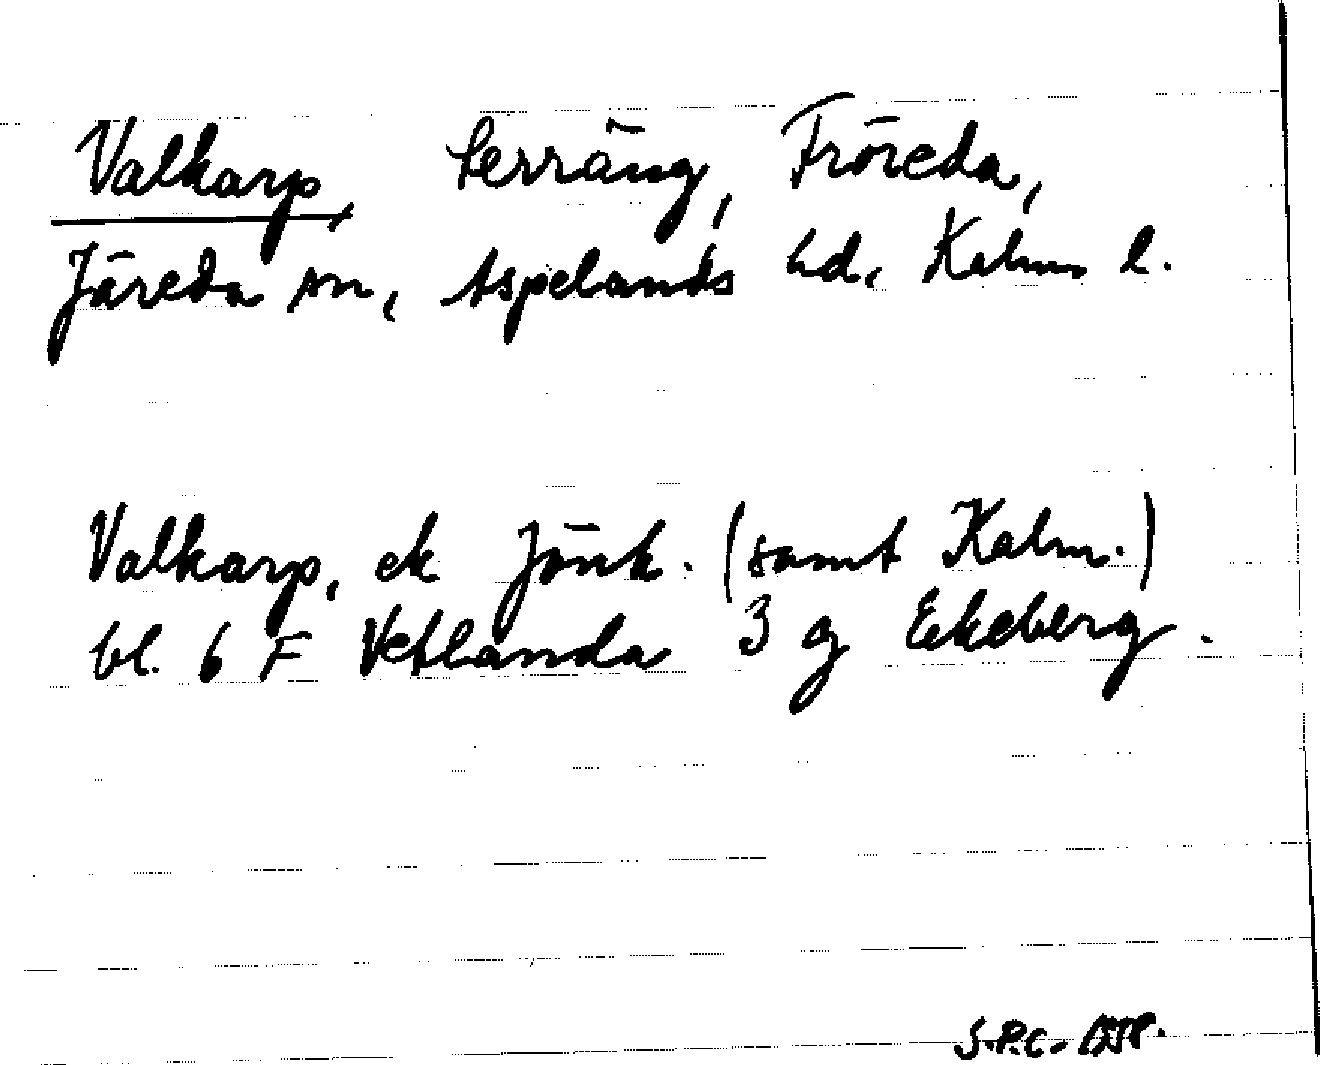 Valkarp, terräng, Fröreda,
Järeda sn, Aspelands hd, Kalm. l.
Valkarp, ek Jönk. (samt Kalm.)
bl. 6 F Vetlanda 3 g Ekeberg.